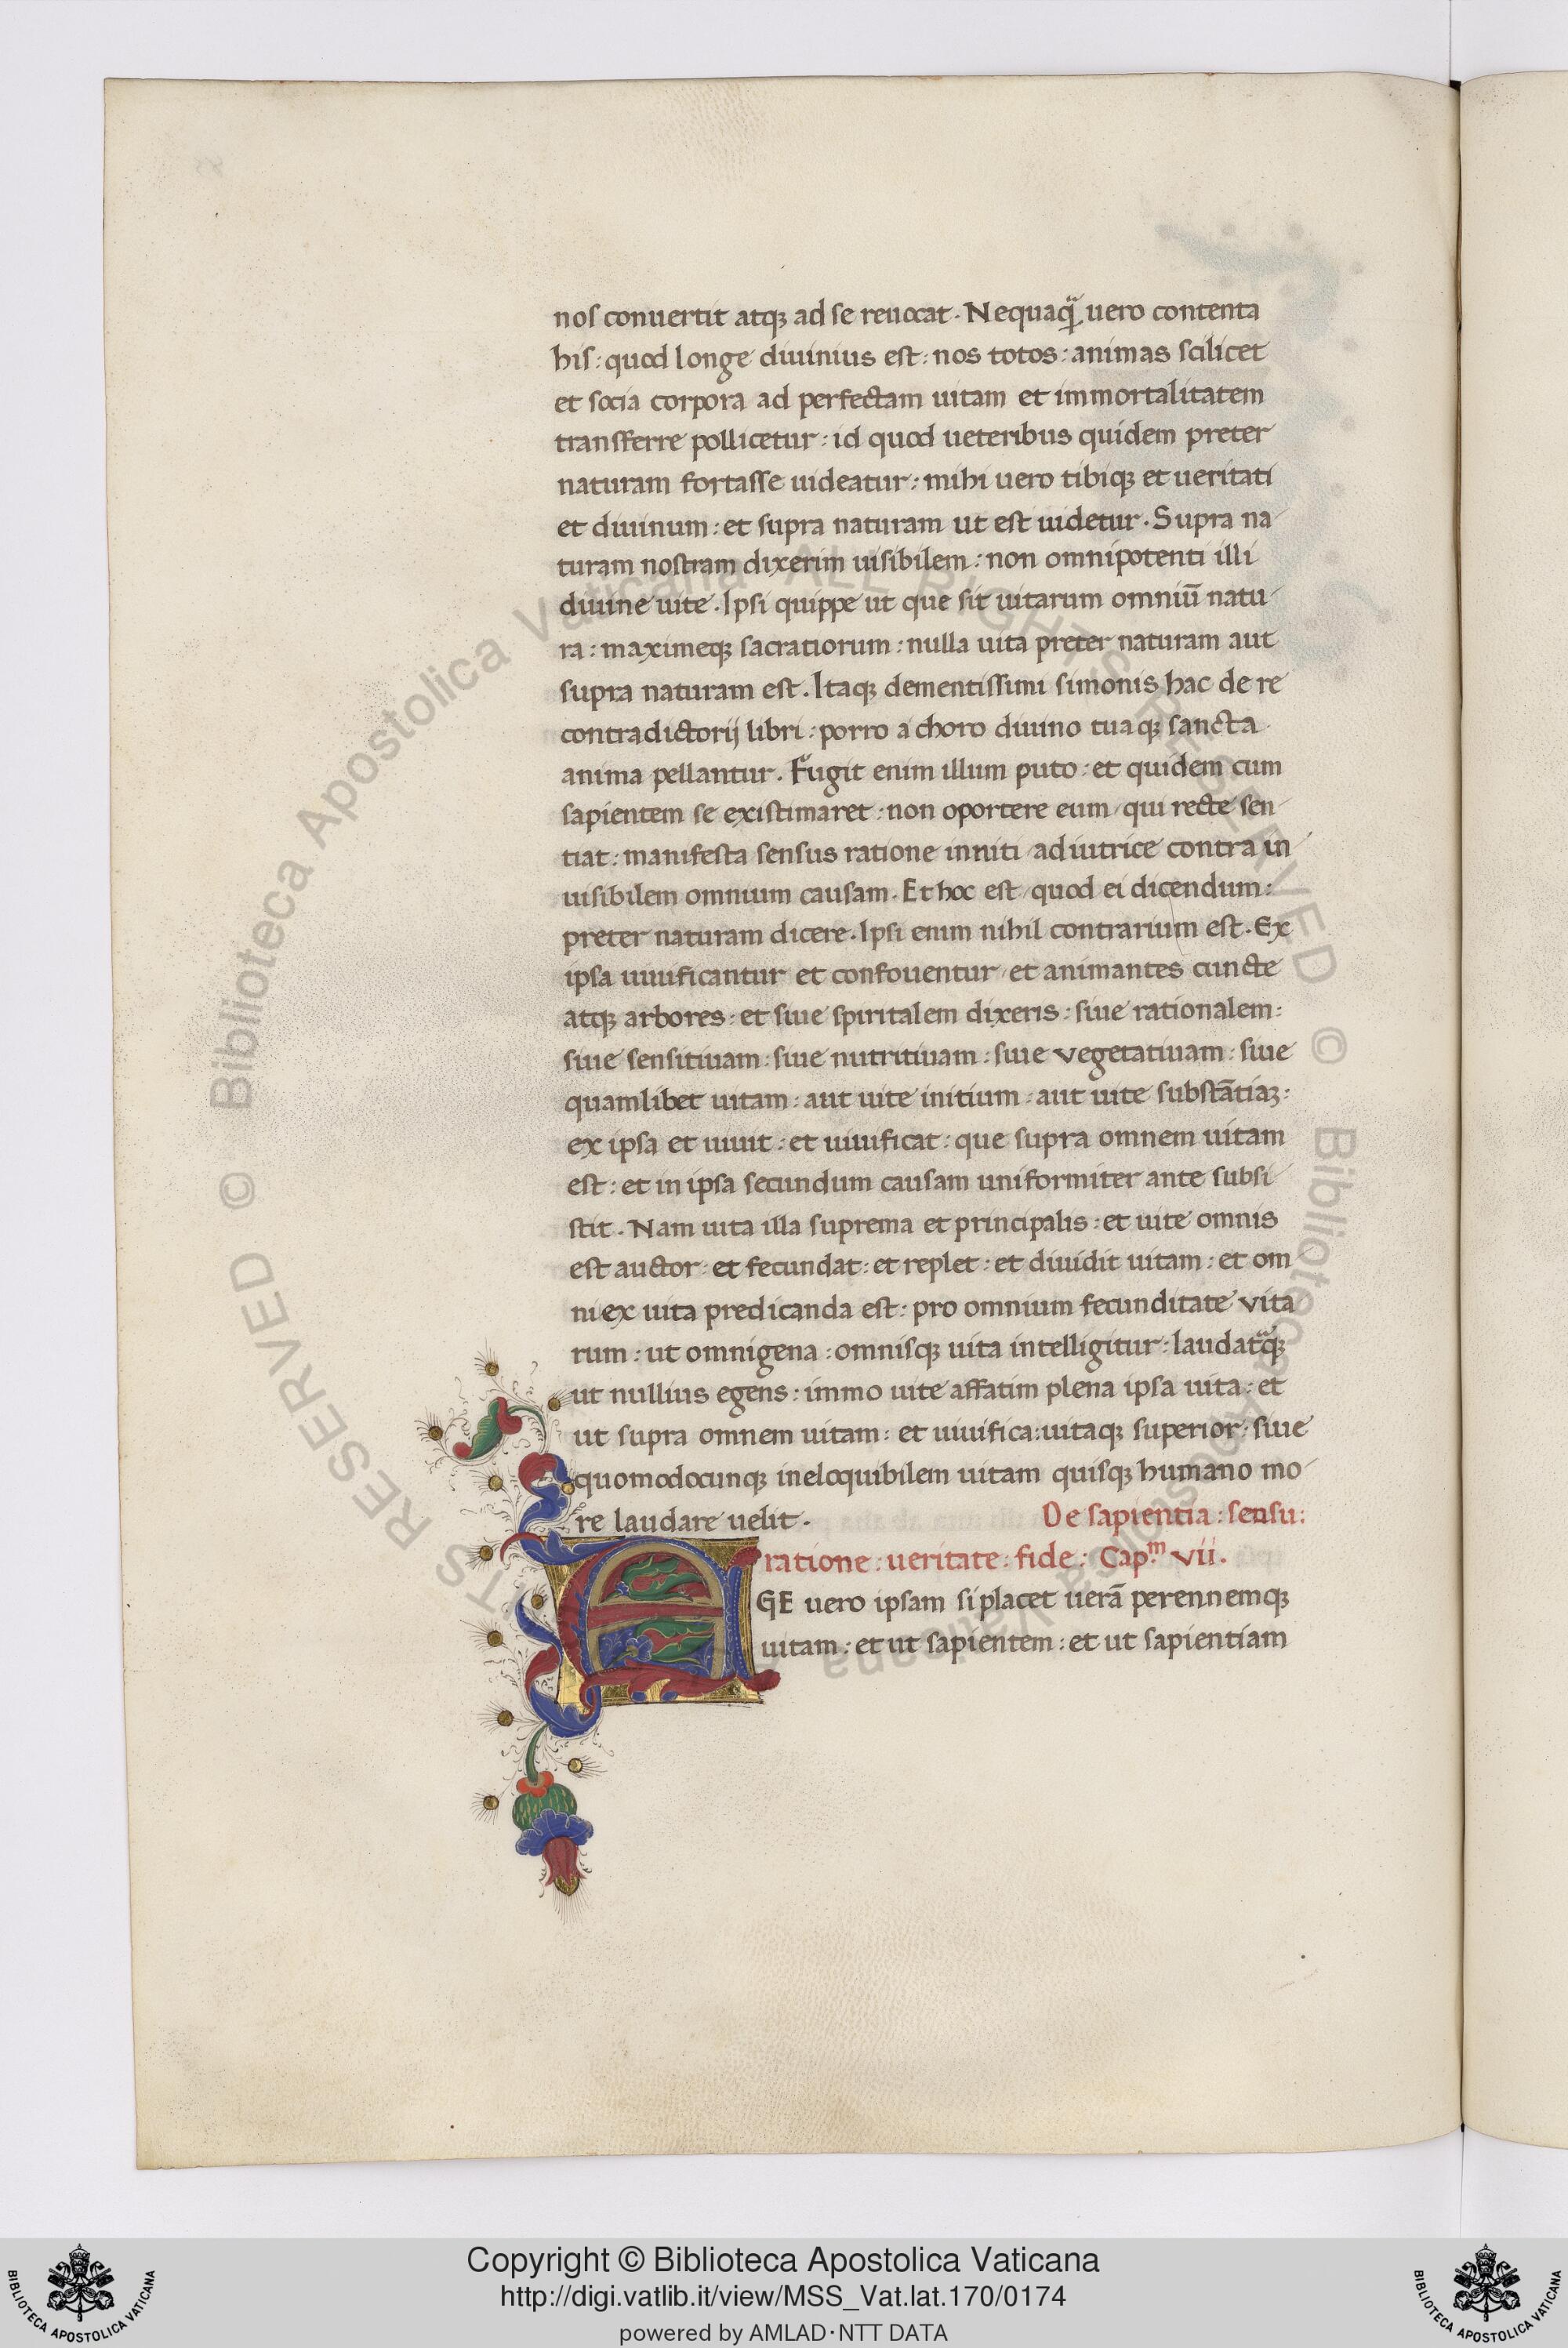 nos conuertit atqꝫ ad se reuocat. Nequaqᷓ uero contenta
his: quod longe diuinius est: nos totos: animas scilicet
et socia corpora ad perfectam uitam et immortalitatem
transferre pollicetur: id quod ueteribus quidem preter
naturam fortasse uideatur: mihi uero tibiqꝫ et ueritati
et diuinum: et supra naturam ut est uidetur. Supra na
turam nostram dixerim uisibilem: non omnipotenti illi
diuine uite. Ipsi quippe ut que sit uitarum omniū natu
ra: maximeqꝫ sacratiorum: nulla uita preter naturam aut
supra naturam est. Itaqꝫ dementissimi simonis hac de re
contradictorij libri: porro a choro diuino tuaqꝫ sancta
anima pellantur. Fugit enim illum puto: et quidem cum
sapientem se existimaret: non oportere eum/ qui recte sen
tiat: manifesta sensus ratione inniti/ adiutrice contra in
uisibilem omnium causam. Et hoc est/ quod ei dicendum:
preter naturam dicere. Ipsi enim nihil contrarium est. Ex
ipsa uiuificantur et confouentur/ et animantes cuncte
atqꝫ arbores: et siue spiritalem dixeris: siue rationalem:
siue sensitiuam: siue nutritiuam: siue vegetatiuam: siue
quamlibet uitam: aut uite initium: aut uite substātiaꝫ:
ex ipsa et uiuit: et uiuificat: que supra omnem uitam
est: et in ipsa secundum causam uniformiter ante subsi
stit. Nam uita illa suprema et principalis: et uite omnis
est auctor: et fecundat: et replet: et diuidit uitam: et om
ni ex uita predicanda est: pro omnium fecunditate vita
rum: ut omnigena: omnisqꝫ uita intelligitur: laudatᷓqꝫ
ut nullius egens: immo uite affatim plena ipsa uita: et
ut supra omnem uitam: et uiuifica: uitaqꝫ superior: siue
quomodocunqꝫ ineloquibilem uitam quisqꝫ humano mo
re laudare uelit. De sapientia: sensu:
ratione: ueritate: fide: Cap.ᵐ vii.
AGE uero ipsam si placet uerā perennemqꝫ
uitam: et ut sapientem: et ut sapientiam
© Biblioteca Apostolica Vaticana ALL RIGHTS RESERVED © Biblioteca Apostolica Vaticana ALL RIGHTS RESERVED
Copyright © Biblioteca Apostolica Vaticana
http://digi.vatlib.it/view/MSS_Vat.lat.170/0174
powered by AMLAD·NTT DATA
BIBLIOTECA APOSTOLICA VATICANA
BIBLIOTECA APOSTOLICA VATICANA